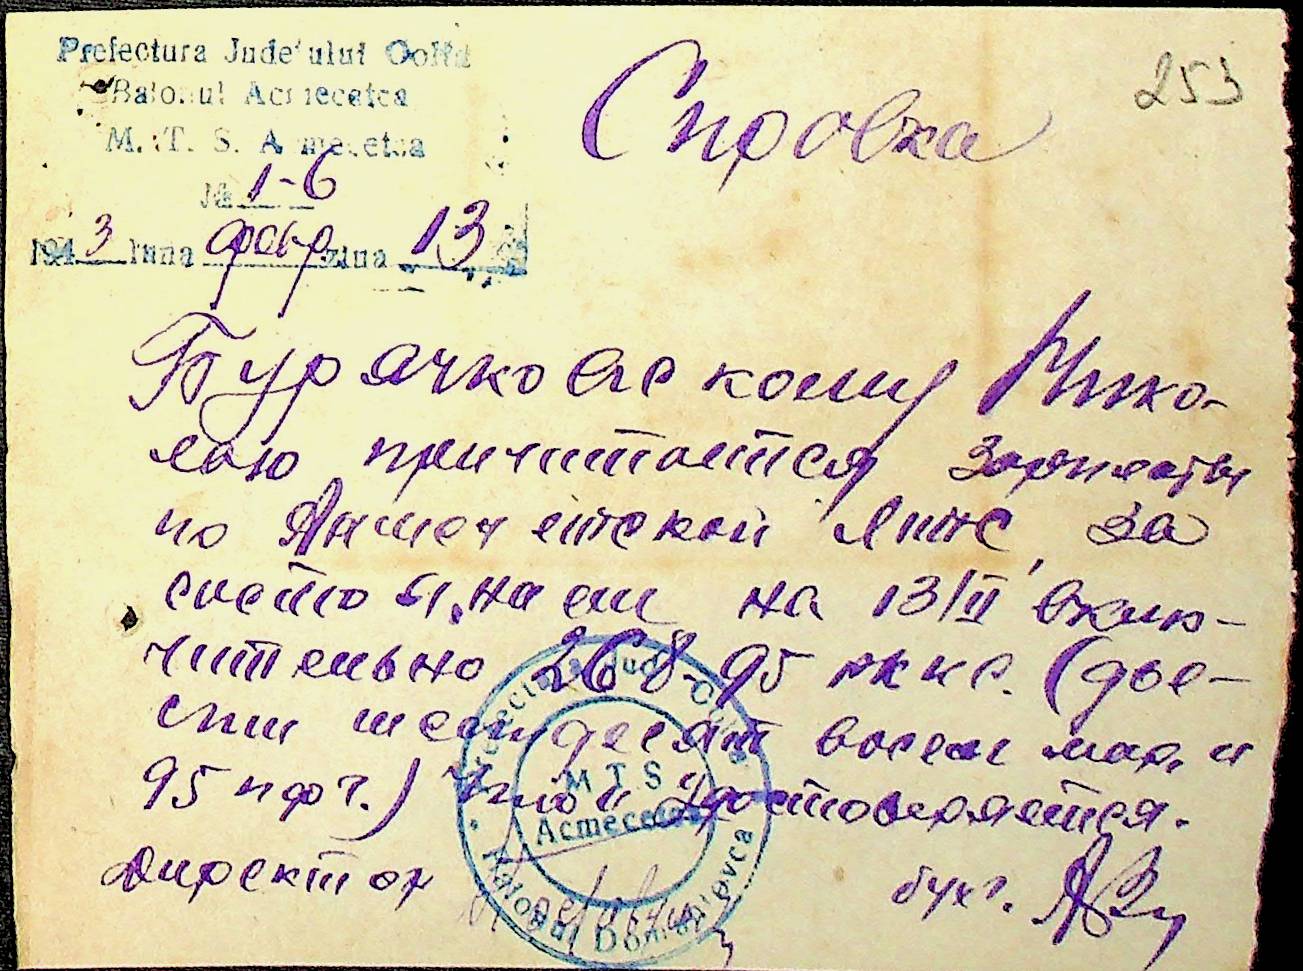 Prefectura Județului Golta
Raionul Acmecetca
M. T. S. Acmecetca
№ 1-6
1943 luna февр ziua 13
253
Справка
Бурячковскому Нико-
лаю причитается зарплаты
по Акмечетской МТС, за
состоянием на 13/II вклю-
чительно 268-95 мкс. (две-
сти шестдесят восем мар. и
95 пфг.) что и удостоверяется.
Директор
бухг.
M T S
Acmecetca